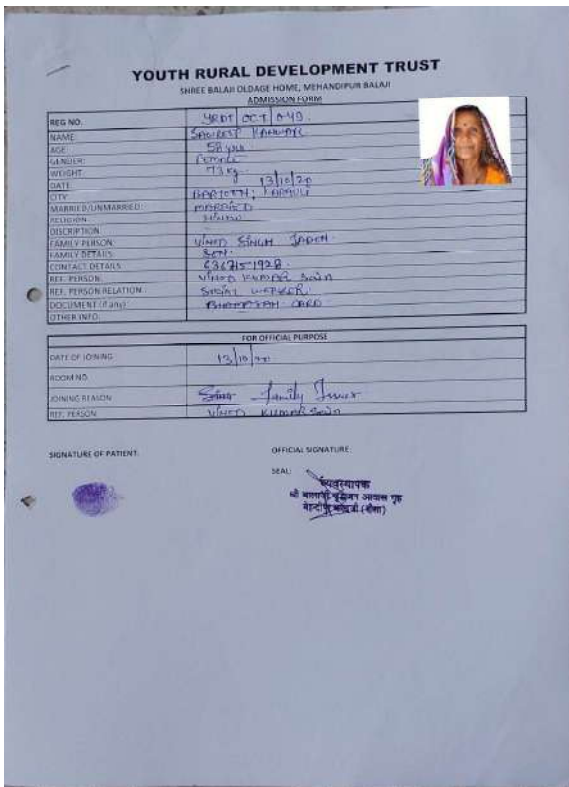 YOUTH RURAL DEVELOPMENT TRUST
SHREE BALAJI OLDAGE HOME, MEHANDIPUR BALAJI
ADMISSION FORM
REG NO. YRDT OCT 049
NAME: KANWAR
AGE 58 yrs
GENDER: Female
WEIGHT 73 kg
DATE 13/10/20
CITY KARAULI
MARRIED/UNMARRIED: MARRIED
RELIGION HINDU
DISCRIPTION
FAMILY PERSON: VINOD SINGH JADON
FAMILY DETAILS: SON
CONTACT DETAILS
REF. PERSON: VINOD KUMAR Soin
REF. PERSON RELATION: SOCIAL WORKER
DOCUMENT (if any): CARD
OTHER INFO:
FOR OFFICIAL PURPOSE
DATE OF JOINING 13/10/20
ROOM NO.
JOINING REASON Family Issues
REF. PERSON VINOD KUMAR Soin
SIGNATURE OF PATIENT:
OFFICIAL SIGNATURE:
SEAL:
व्यवस्थापक
श्री बालाजी वृद्धजन आवास गृह